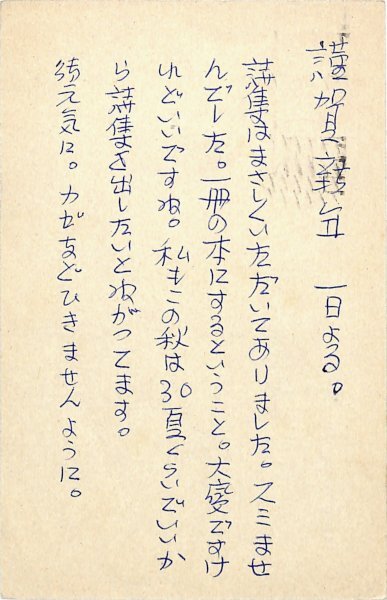 謹賀新年 一日よる。
詩集はまさしくいただいてありました。スミませ
んでした。一冊の本にするということ。大変ですけ
れどいいですね。私もこの秋は30頁くらいでいいか
ら詩集を出したいとねがってます。
御元気に。カゼなどひきませんように。